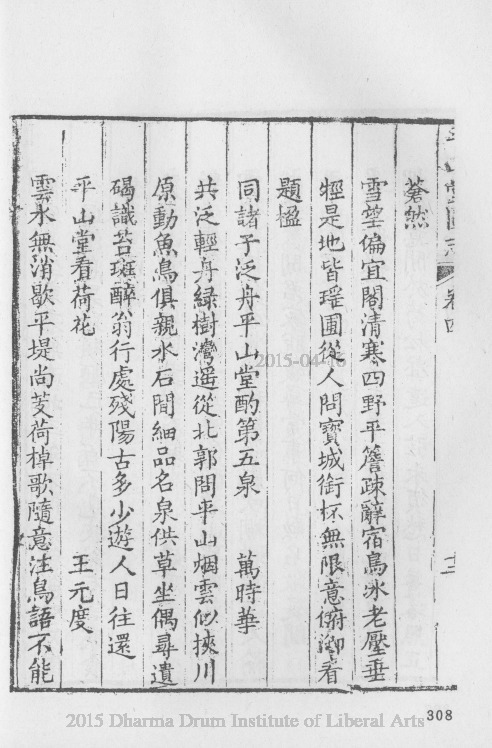 平山堂圖志 卷四 十二
蒼然
雪堂偏宜閣清寒四野平簷疎辭宿鳥氷老壓垂
檉是地皆瑶圃從人問寶城銜杯無限意俯海看
題楹
同諸子泛舟平山堂酌第五泉 萬時華
共泛輕舟綠樹灣遥從北郭問平山烟雲似挾川
原動魚鳥俱親水石間細品名泉供草坐偶尋遺
碣識苔斑醉翁行處殘陽古多少遊人日往還
平山堂看荷花 王元度
雲水無消歇平堤尚芰荷棹歌隨意注鳥語不能
308
2015-04-16
2015 Dharma Drum Institute of Liberal Arts